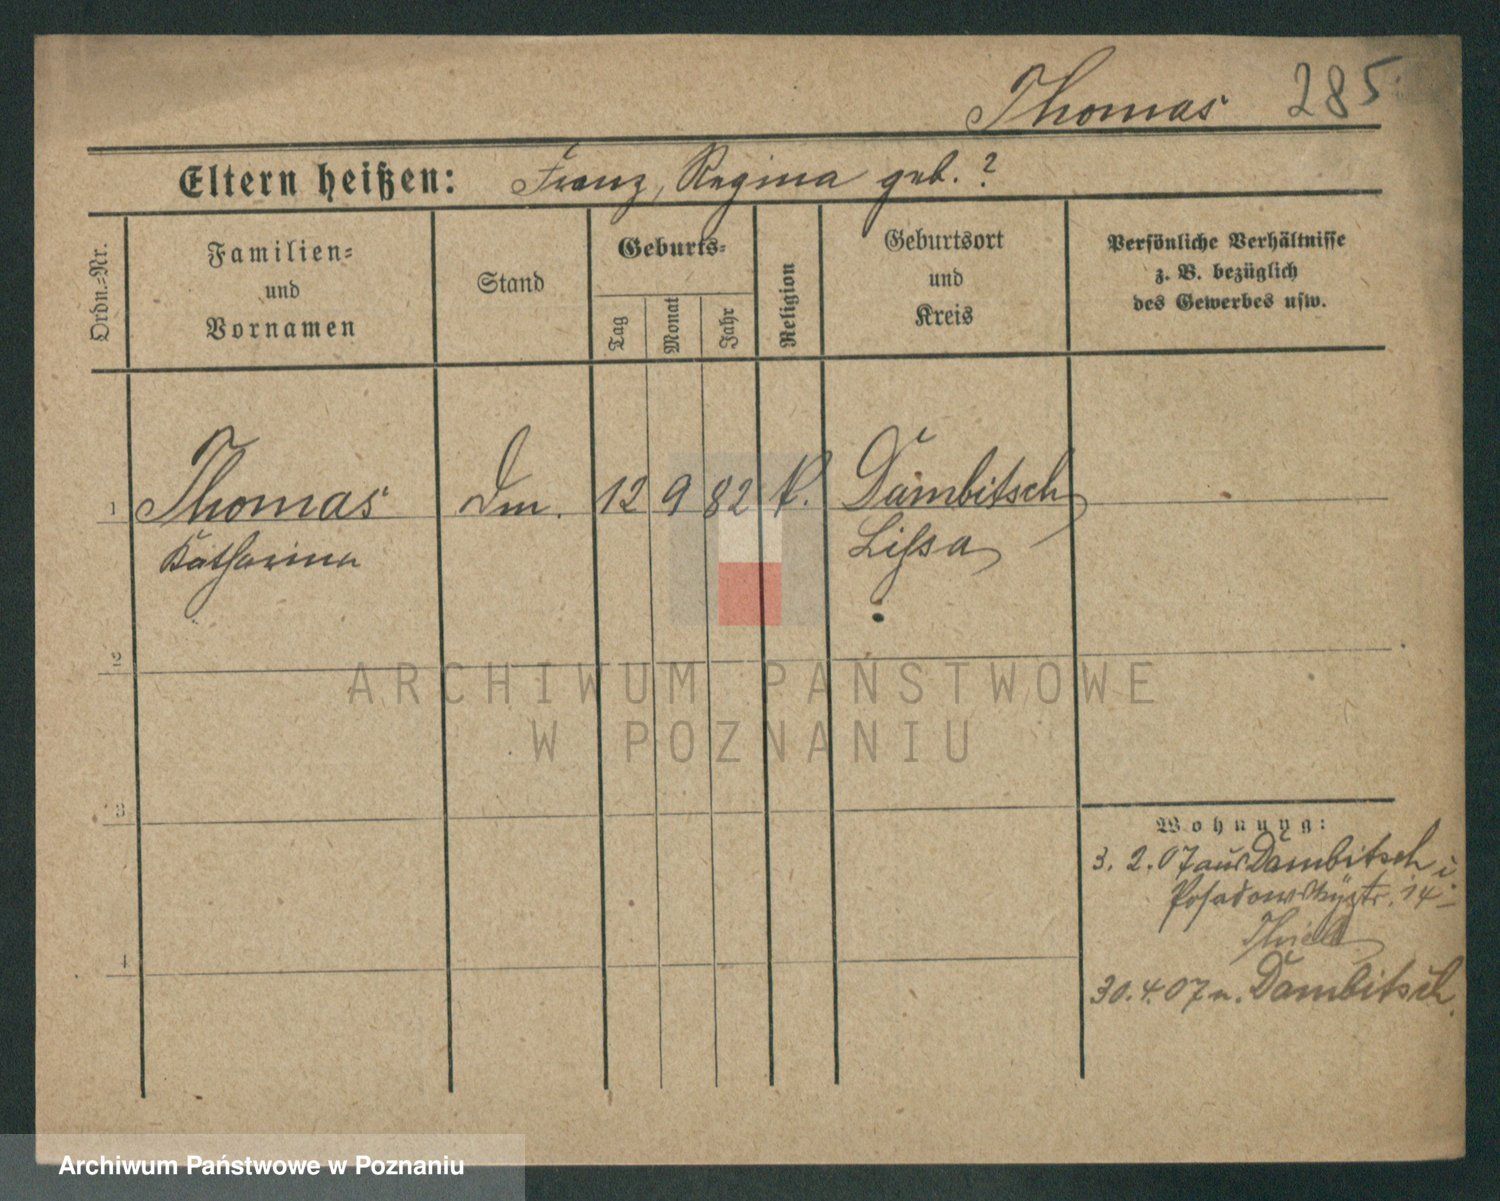 Thomas 285.
Eltern heißen: Franz, Regina geb. ?
Ordn.-Nr.
Familien-
und
Vornamen
Stand
Geburts-
Tag
Monat
Jahr
Religion
Geburtsort
und
Kreis
Persönliche Verhältnisse
z. B. bezüglich
des Gewerbes usw.
1 Thomas Dm. 12 9 82 K. Dambitsch
Katharina Lissa
2
3
4
Wohnung:
3. 2. 07 aus Dambitsch
Posadowskystr. 14
Thiel
30. 4. 07 n. Dambitsch.
ARCHIWUM PAŃSTWOWE
W POZNANIU
Archiwum Państwowe w Poznaniu